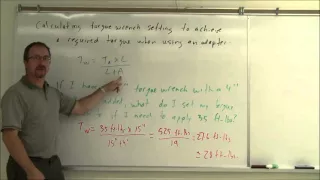 Calculating torque wrench setting to achieve
a required torque when using an adapter.
Tw = Ta × L
L + A
If I have 15" torque wrench with a 4"
what do I set my torque
if I need to apply 35 ft-lbs?
Tw = 35 ft-lbs × 15" = 525 ft-lbs = 27.6 ft-lbs
15" + 4" 19
≈ 28 ft-lbs.